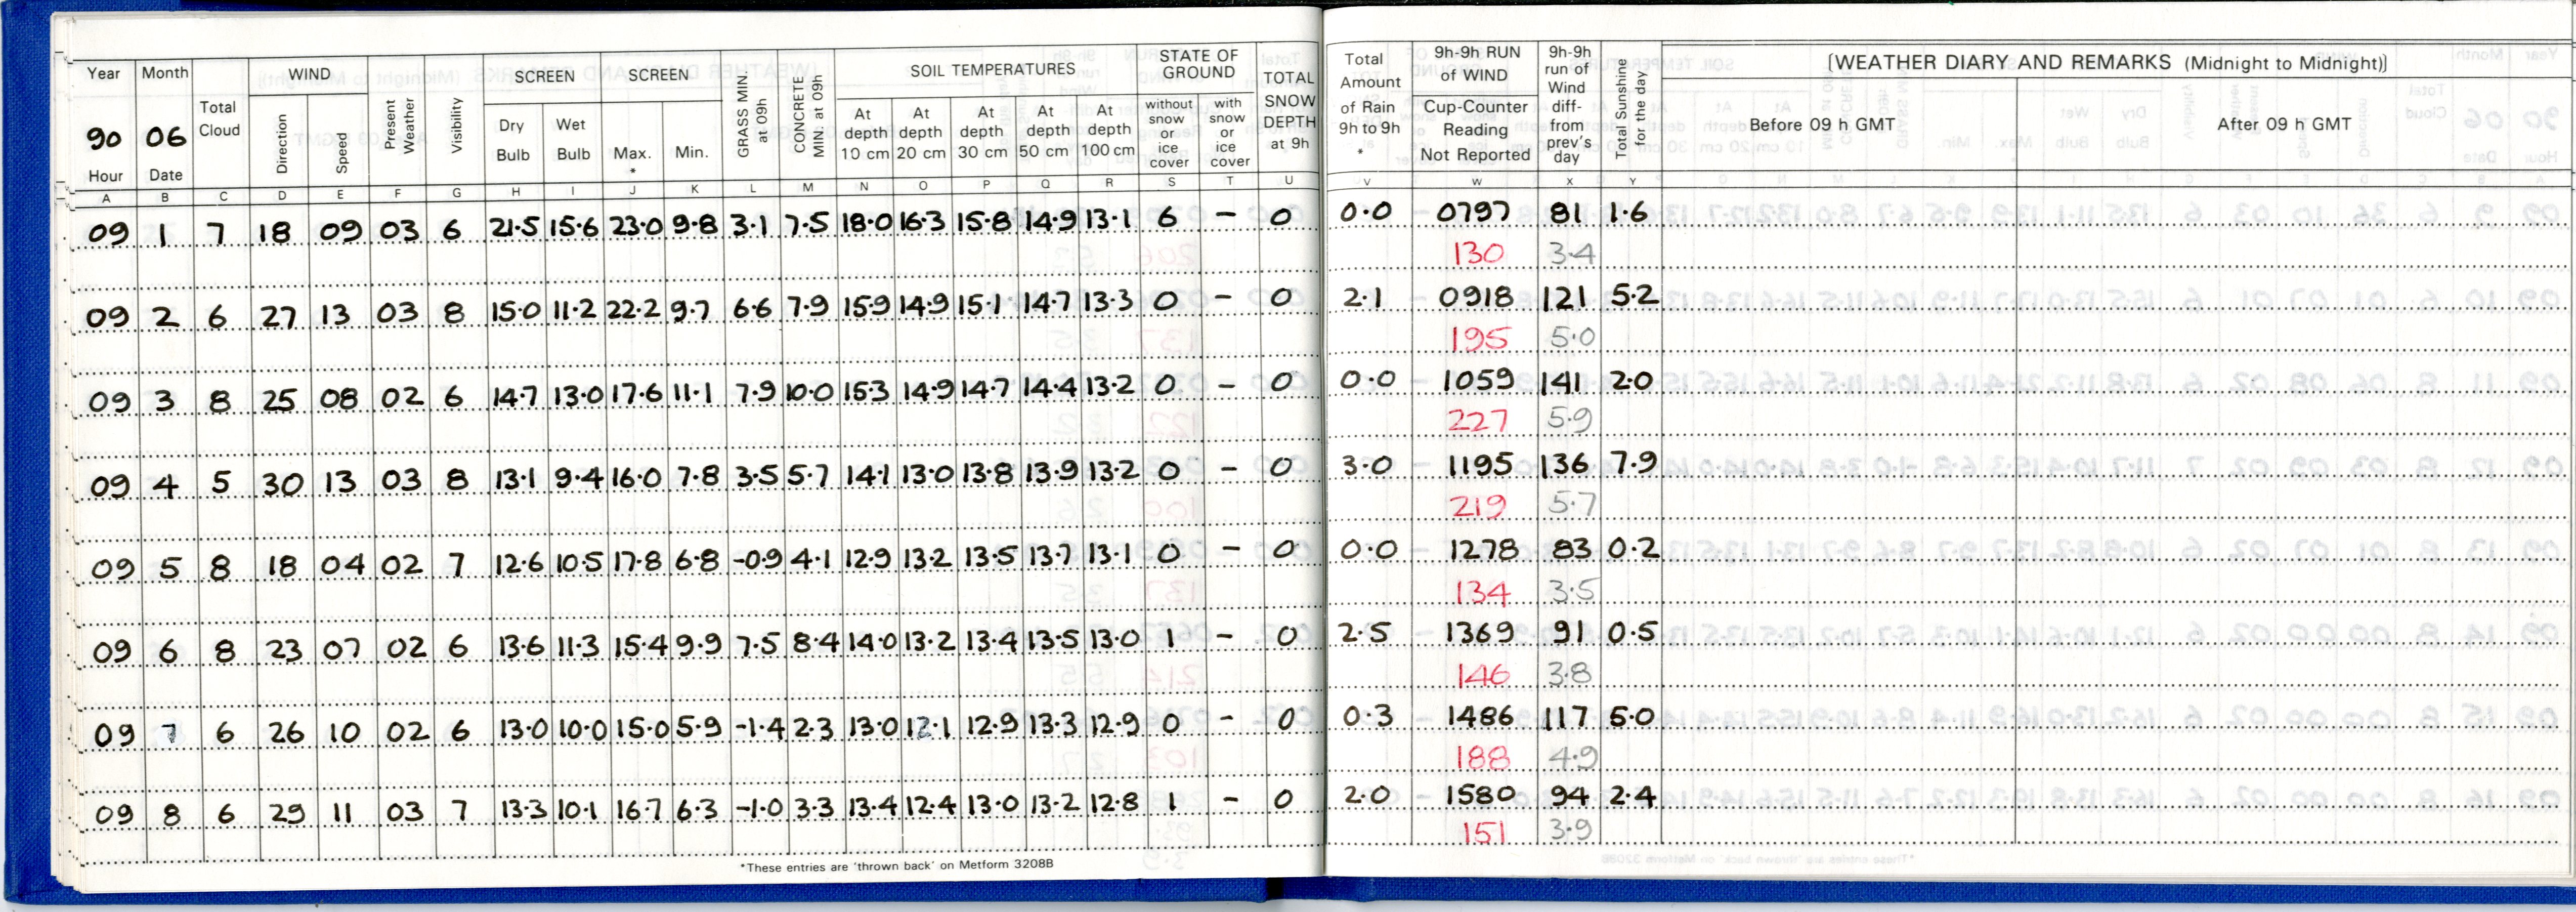 Year Month Total Cloud WIND Present Weather Visibility SCREEN SCREEN GRASS MIN. at 09h CONCRETE MIN at 09h SOIL TEMPERATURES STATE OF GROUND TOTAL SNOW DEPTH at 9h Total Amount of Rain 9h to 9h * 9h-9h RUN of WIND 9h-9h run of Wind diff- from prev's day Total Sunshine for the day [WEATHER DIARY AND REMARKS (Midnight to Midnight)]
90 06 Direction Speed Dry Bulb Wet Bulb Max. * Min. At depth 10 cm At depth 20 cm At depth 30 cm At depth 50 cm At depth 100 cm without snow or ice cover with snow or ice cover Cup-Counter Reading Not Reported Before 09 h GMT After 09 h GMT
Hour Date
A B C D E F G H I J K L M N O P Q R S T U V W X Y
09 1 7 18 09 03 6 21.5 15.6 23.0 9.8 3.1 7.5 18.0 16.3 15.8 14.9 13.1 6 – 0 0.0 0797 81 1.6
130 3.4
09 2 6 27 13 03 8 15.0 11.2 22.2 9.7 6.6 7.9 15.9 14.9 15.1 14.7 13.3 0 – 0 2.1 0918 121 5.2
195 5.0
09 3 8 25 08 02 6 14.7 13.0 17.6 11.1 7.9 10.0 15.3 14.9 14.7 14.4 13.2 0 – 0 0.0 1059 141 2.0
227 5.9
09 4 5 30 13 03 8 13.1 9.4 16.0 7.8 3.5 5.7 14.1 13.0 13.8 13.9 13.2 0 – 0 3.0 1195 136 7.9
219 5.7
09 5 8 18 04 02 7 12.6 10.5 17.8 6.8 -0.9 4.1 12.9 13.2 13.5 13.7 13.1 0 – 0 0.0 1278 83 0.2
134 3.5
09 6 8 23 07 02 6 13.6 11.3 15.4 9.9 7.5 8.4 14.0 13.2 13.4 13.5 13.0 1 – 0 2.5 1369 91 0.5
146 3.8
09 7 6 26 10 02 6 13.0 10.0 15.0 5.9 -1.4 2.3 13.0 12.1 12.9 13.3 12.9 0 – 0 0.3 1486 117 5.0
188 4.9
09 8 6 29 11 03 7 13.3 10.1 16.7 6.3 -1.0 3.3 13.4 12.4 13.0 13.2 12.8 1 – 0 2.0 1580 94 2.4
151 3.9
*These entries are 'thrown back' on Metform 3208B